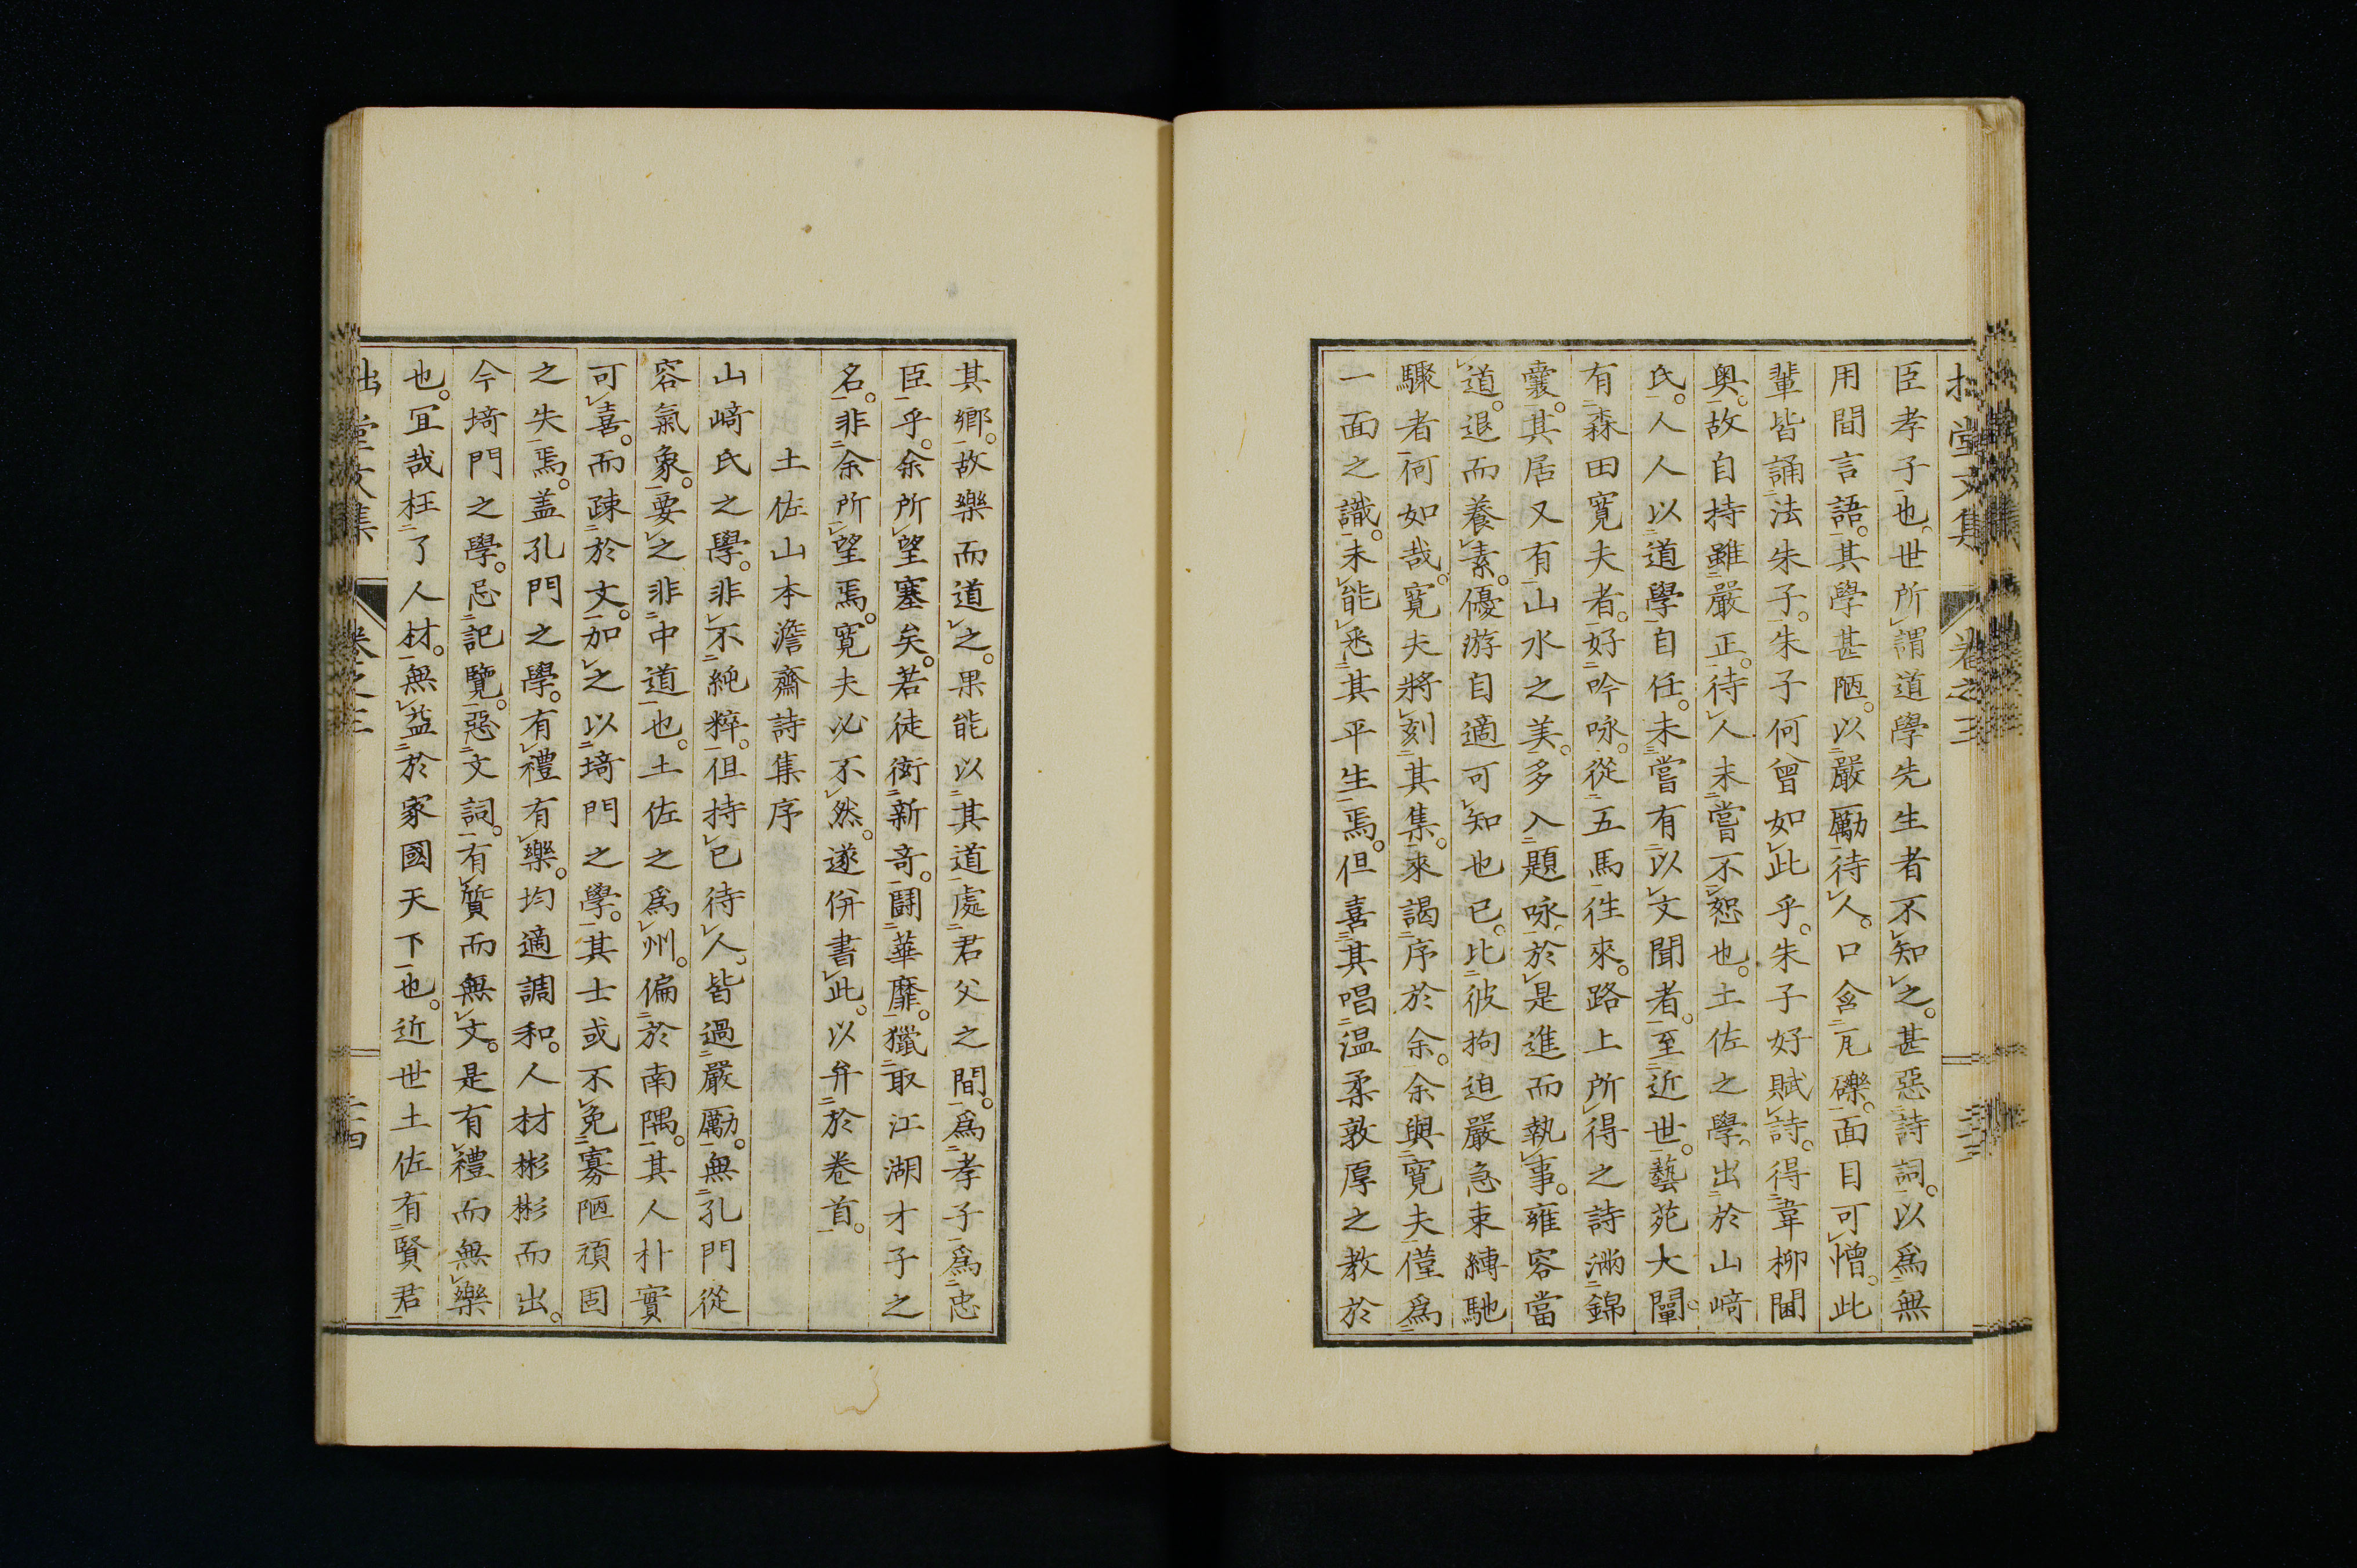 臣孝子也。世所謂道學先生者不知之。甚惡詩詞。以爲無
用間言語。其學甚陋。以嚴勵待人。口含瓦礫。面目可憎。此
輩皆誦法朱子。朱子何曾如此乎。朱子好賦詩。得韋柳閫
奧。故自持雖嚴正。待人未嘗不恕也。土佐之學。出於山﨑
氏。人人以道學自任。未嘗有以文聞者。至近世。藝苑大闡。
有森田寬夫者。好吟咏。從五馬徃來。路上所得之詩滿錦
囊。其居又有山水之美。多入題咏。於是進而執事。雍容當
道。退而養素。優游自適可知也已。比彼拘迫嚴急束縛馳
驟者何如哉。寬夫將刻其集。來謁序於余。余與寬夫僅爲
一面之識。未能悉其平生焉。但喜其唱温柔敦厚之教於
其鄉。故樂而道之。果能以其道處君父之間。爲孝子爲忠
臣乎。余所望塞矣。若徒衒新奇。鬪華靡。獵取江湖才子之
名。非余所望焉。寬夫必不然。遂併書此。以弁於卷首。
土佐山本澹齋詩集序
山﨑氏之學。非不純粹。但持己待人。皆過嚴厲。無孔門從
容氣象。要之非中道也。土佐之爲州。偏於南隅。其人朴實
可喜。而疎於文。加之以埼門之學。其士或不免寡陋頑固
之失焉。盖孔門之學。有禮有樂。均適調和。人材彬彬而出。
今埼門之學。忌記覽。惡文詞。有質而無文。是有禮而無樂
也。冝哉枉了人材。無益於家國天下也。近世土佐有賢君
堂文集 卷之三